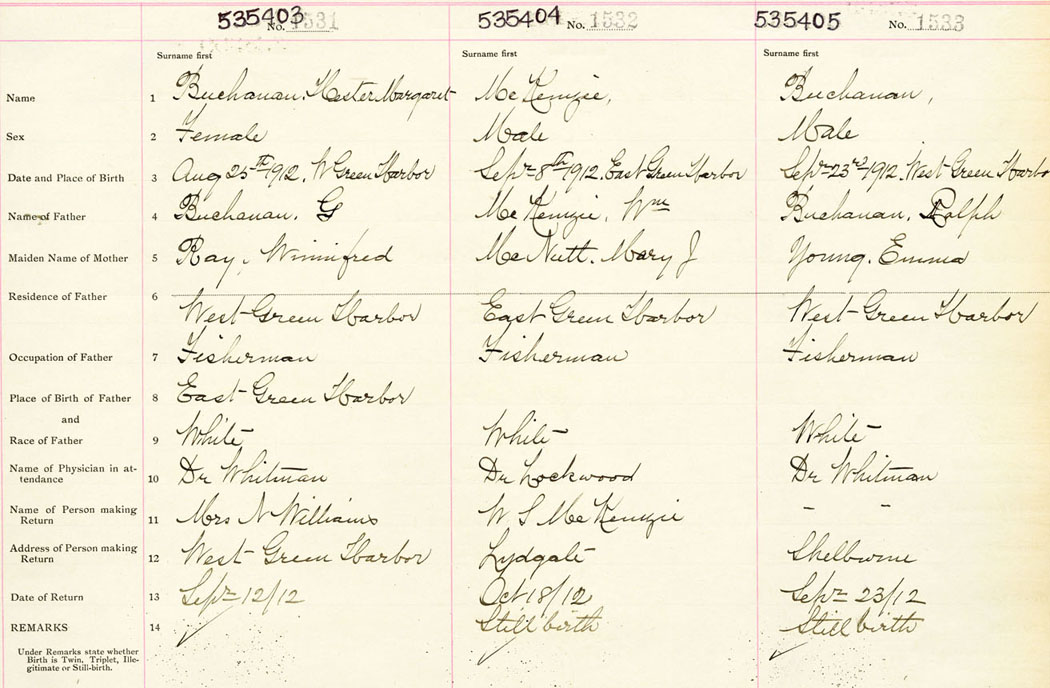 535403 No. 1531 535404 No. 1532 535405 No. 1533
Surname first Surname first Surname first
Name 1 Buchanan, Hester Margaret McKenzie, Buchanan,
Sex 2 Female Male Male
Date and Place of Birth 3 Aug 25th 1912, W Green Harbor Sept 8th 1912. East Green Harbor Sept 23rd 1912. West Green Harbo
Name of Father 4 Buchanan. G McKenzie, Wm Buchanan, Ralph
Maiden Name of Mother 5 Ray, Winnifred McNutt. Mary J Young. Emma
Residence of Father 6
West Green Harbor East Green Harbor West Green Harbor
Occupation of Father 7 Fisherman Fisherman Fisherman
Place of Birth of Father 8 East Green Harbor
and
Race of Father 9 White White White
Name of Physician in at-
tendance 10 Dr Whitman Dr Lockwood Dr Whitman
Name of Person making
Return 11 Mrs N Williams W S McKenzie - -
Address of Person making
Return 12 West Green Harbor Lydgate Shelburne
Date of Return 13 Sept 12/12 Oct 18/12 Sept 23/12
REMARKS 14 Still birth Still birth
Under Remarks state whether
Birth is Twin, Triplet, Ille-
gitimate or Still-birth.